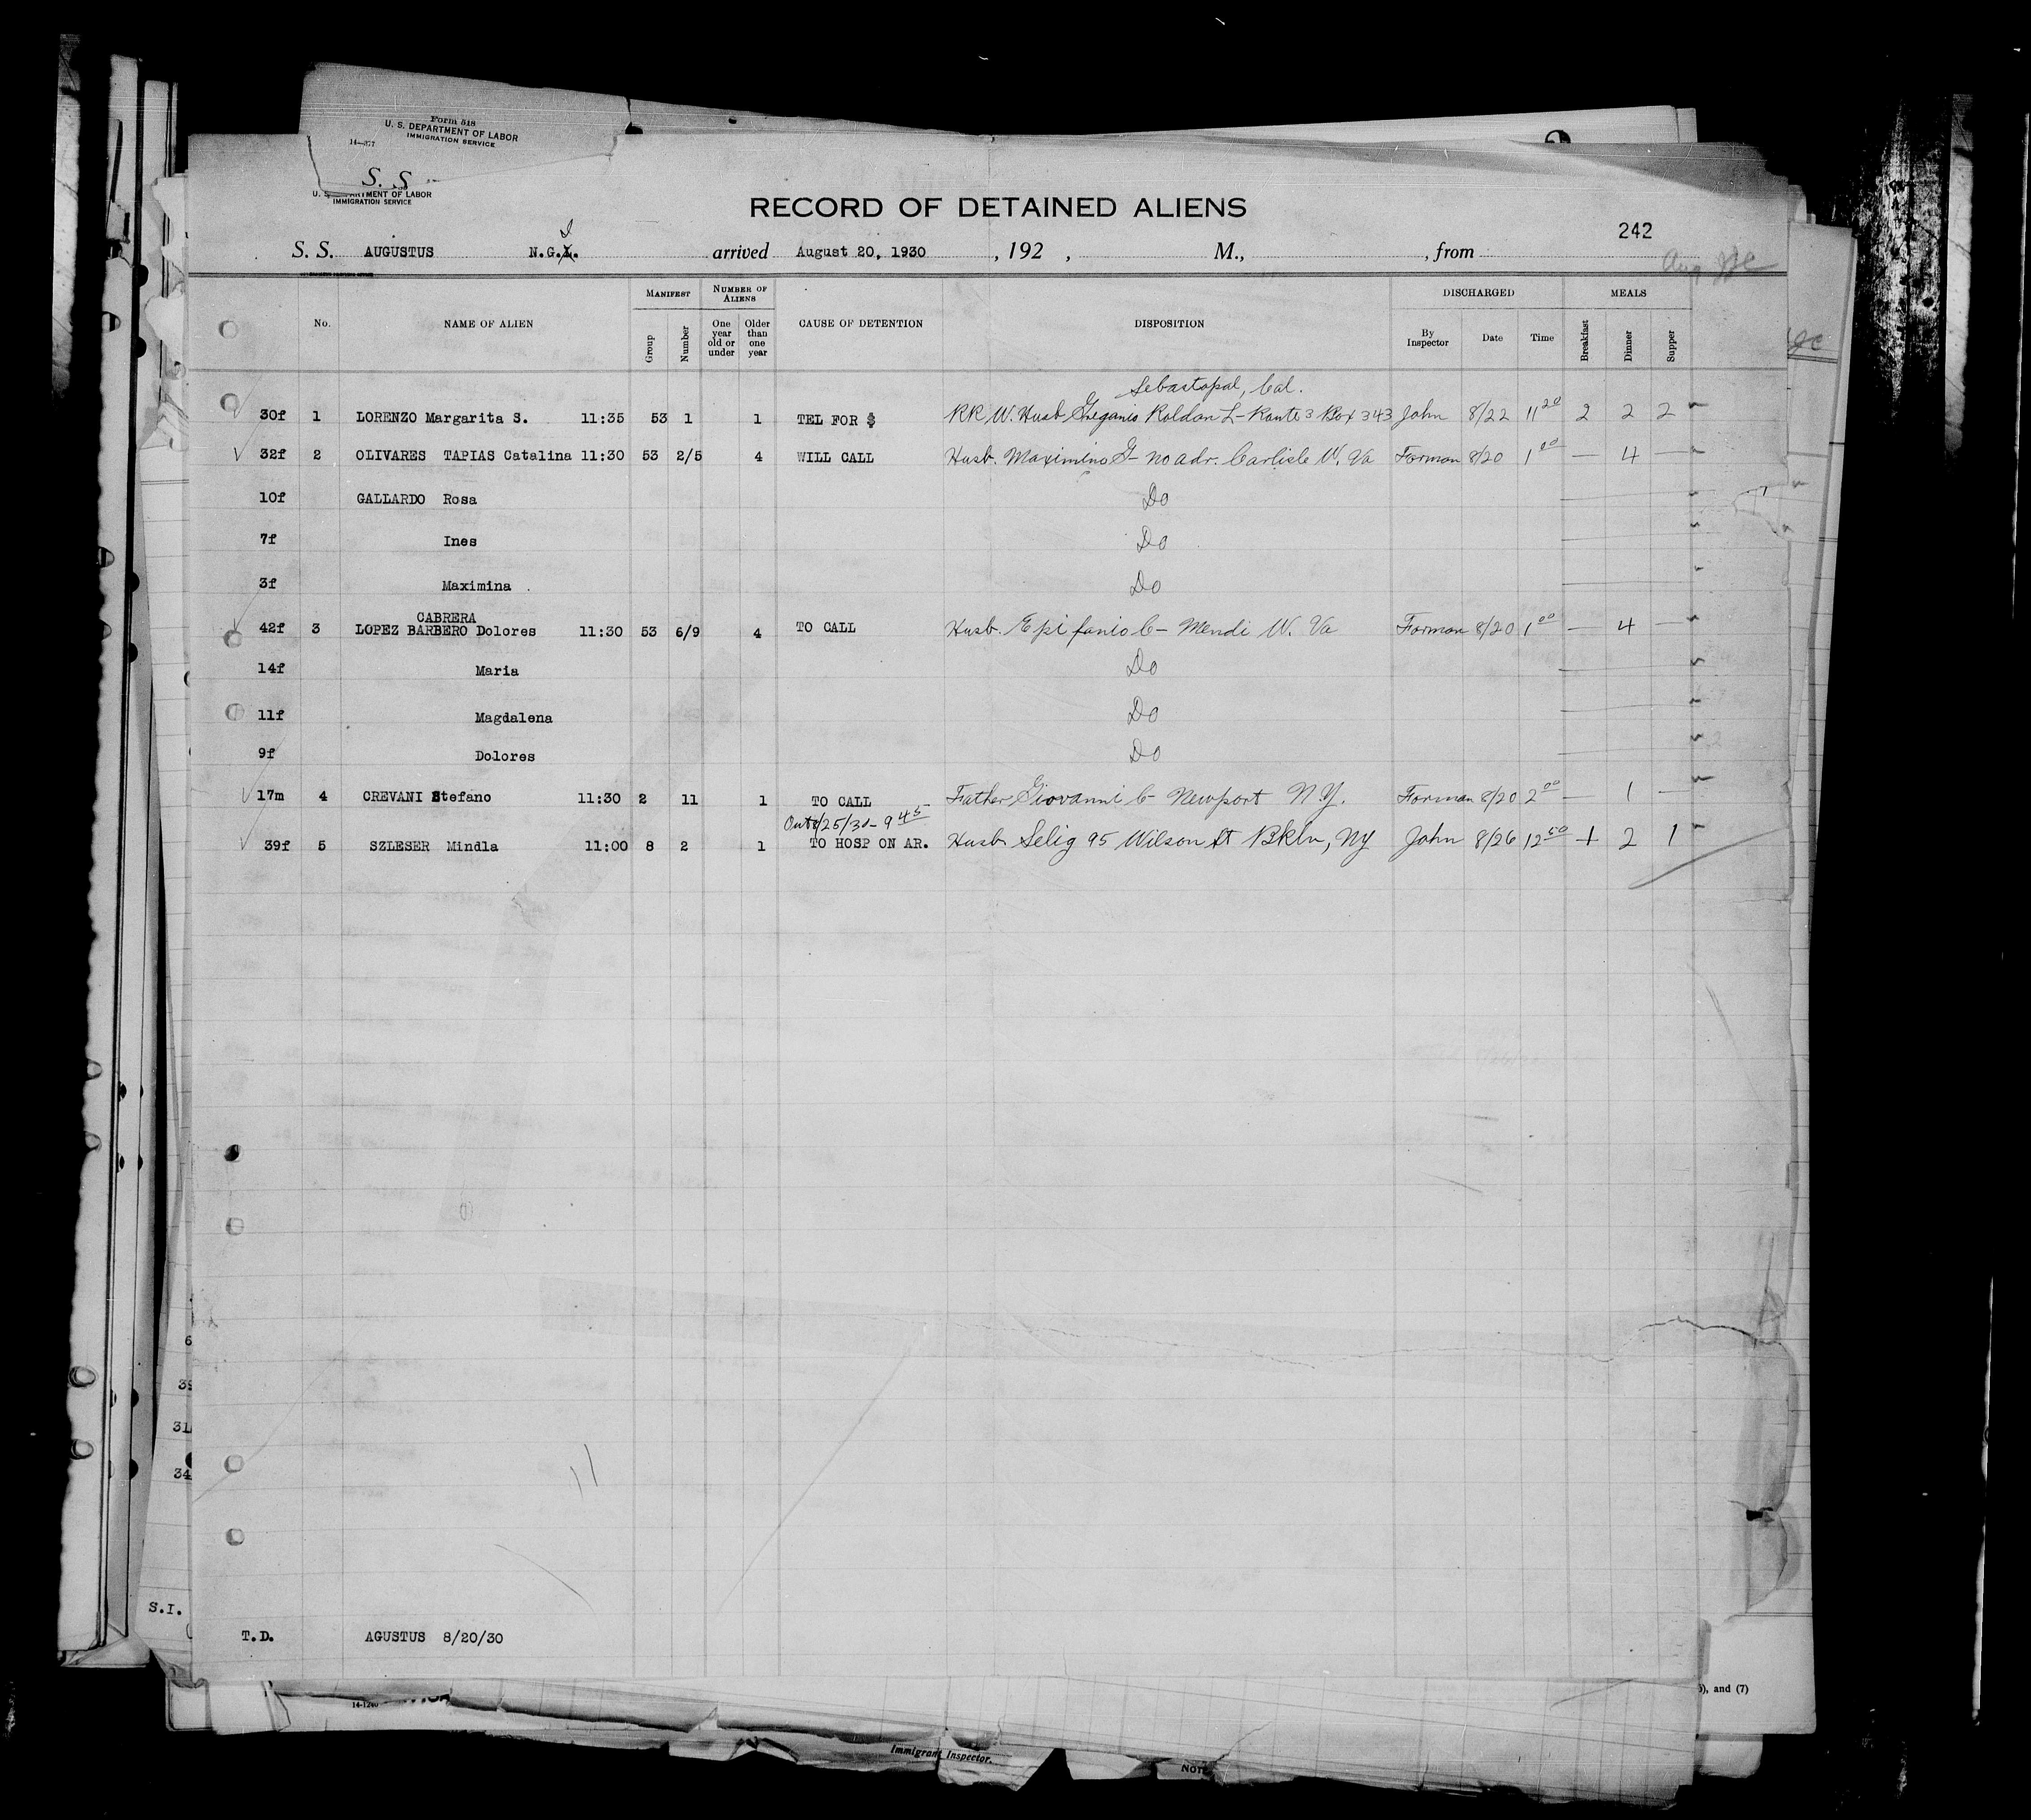 Form 518
U. S. DEPARTMENT OF LABOR
IMMIGRATION SERVICE
S. S
U. S. DEPARTMENT OF LABOR
IMMIGRATION SERVICE
RECORD OF DETAINED ALIENS
242
S. S. AUGUSTUS N.G.I. arrived August 20, 1930, 192 , M., , from
No. NAME OF ALIEN MANIFEST Group Number NUMBER OF ALIENS One year old or under Older than one year CAUSE OF DETENTION DISPOSITION DISCHARGED By Inspector Date Time MEALS Breakfast Dinner Supper
Sebastopal, Cal.
30f 1 LORENZO Margarita S. 11:35 53 1 1 TEL FOR $ RR W. Husb Roldan L - Route 3 Box 343 John 8/22 11 20 2 2 2
32f 2 OLIVARES TAPIAS Catalina 11:30 53 2/5 4 WILL CALL Husb. Maximino G - no adr. Carlisle W. Va Forman 8/20 1 00 — 4 —
10f GALLARDO Rosa Do
7f Ines Do
3f Maximina Do
CABRERA
42f 3 LOPEZ BARBERO Dolores 11:30 53 6/9 4 TO CALL Husb. Epifanio C - Mendi W. Va Forman 8/20 1 00 — 4 —
14f Maria Do
11f Magdalena Do
9f Dolores Do
17m 4 CREVANI Stefano 11:30 2 11 1 TO CALL Father Giovanni C - Newport N.Y. Forman 8/20 2 00 — 1 —
Out 8/25/30 - 9 45
39f 5 SZLESER Mindla 11:00 8 2 1 TO HOSP ON AR. Husb Selig 95 Wilson St Bkln, NY John 8/26 12 50 1 2 1
S.I.
T.D. AGUSTUS 8/20/30
, and (7)
Immigrant Inspector.
NOTE